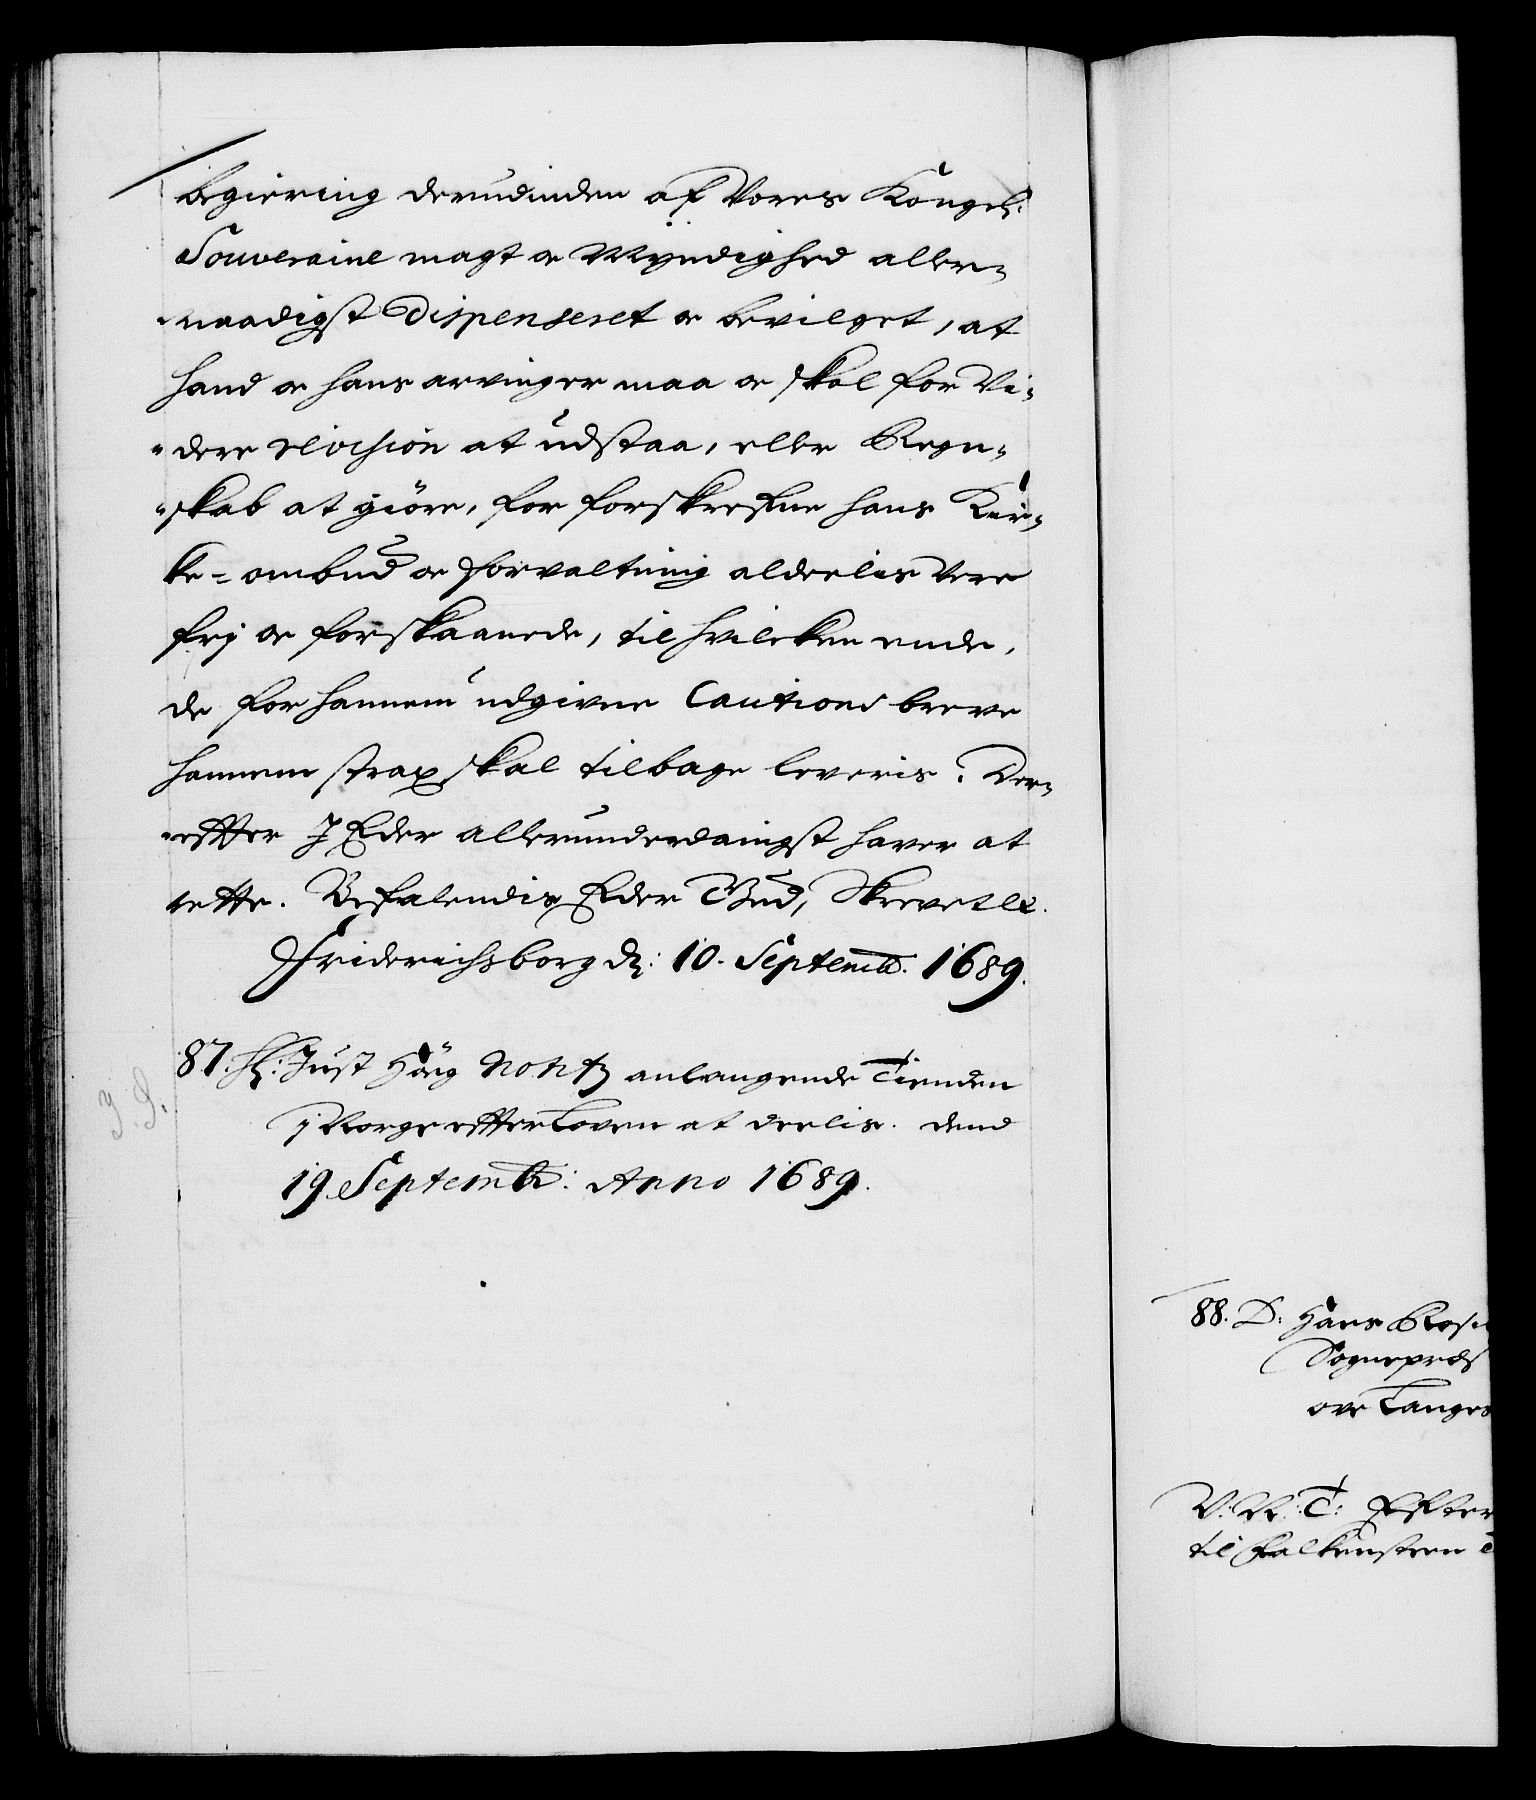 begiering derudinden af Vores Kongel:
Souveraine magt oc Myndighed aller-
-naadigst Dispenseret oc bevilget, at
hand oc hans arvinger maa oc skal for Vi-
-dere revision at udstaa, eller Regn-
-skab at giöre, for forskrefne hans Kir-
ke-ombud oc forvaltning alderlis Vere
frj oc forskaanede, til hvilcken ende,
de for hannem udgivne Cautions breve
hannem strax skal tilbage leveris. Der-
-effter J Eder allerunderdanigst haver at
rette. Befalendis Eder Gud, Skrevet &c.
Friderichsborg d: 10. Septemb. 1689.
87. H: Just Höeg Not: anlangende Tienden
j Norge effter Loven at deelis. dend
19. Septembr: Anno 1689.
J. J.
88. D: Hans Ros
Sognepræs
ove Langes
V: V: T: Effter
til Falkensteen